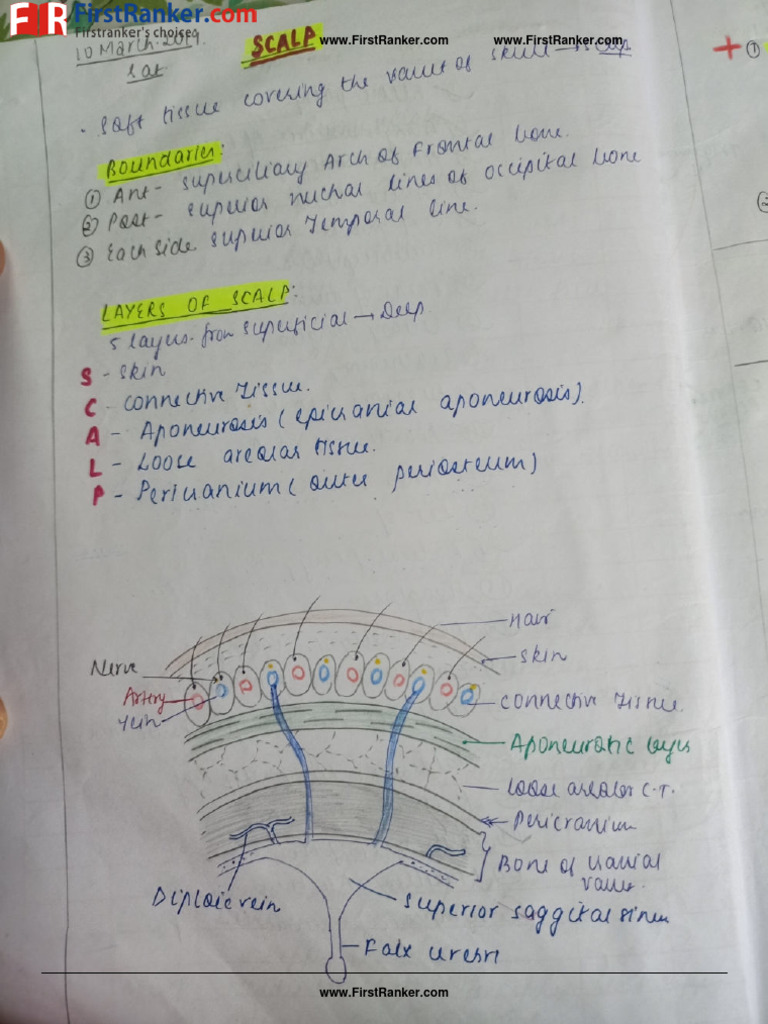 FirstRanker.com
Firstranker's choice
www.FirstRanker.com
www.FirstRanker.com
10 March
Sat
SCALP
• Soft tissue covering the vault of skull → scalp
Boundaries:
① Ant - Superciliary Arch of Frontal bone.
② Post - Superior nuchal lines of occipital bone
③ Each side Superior Temporal line.
LAYERS OF SCALP:
5 layers from superficial → Deep
S - Skin
C - Connective Tissue.
A - Aponeurosis (epicranial aponeurosis).
L - Loose areolar tissue.
P - Pericranium (outer periosteum)
Hair
Skin
Nerve
Artery
Vein
Connective Tissue.
Aponeurotic layer
Loose areolar C.T.
Pericranium
Bone of cranial
vault.
Diploic vein
Superior saggital sinus
Falx cerebri
www.FirstRanker.com
+ ①